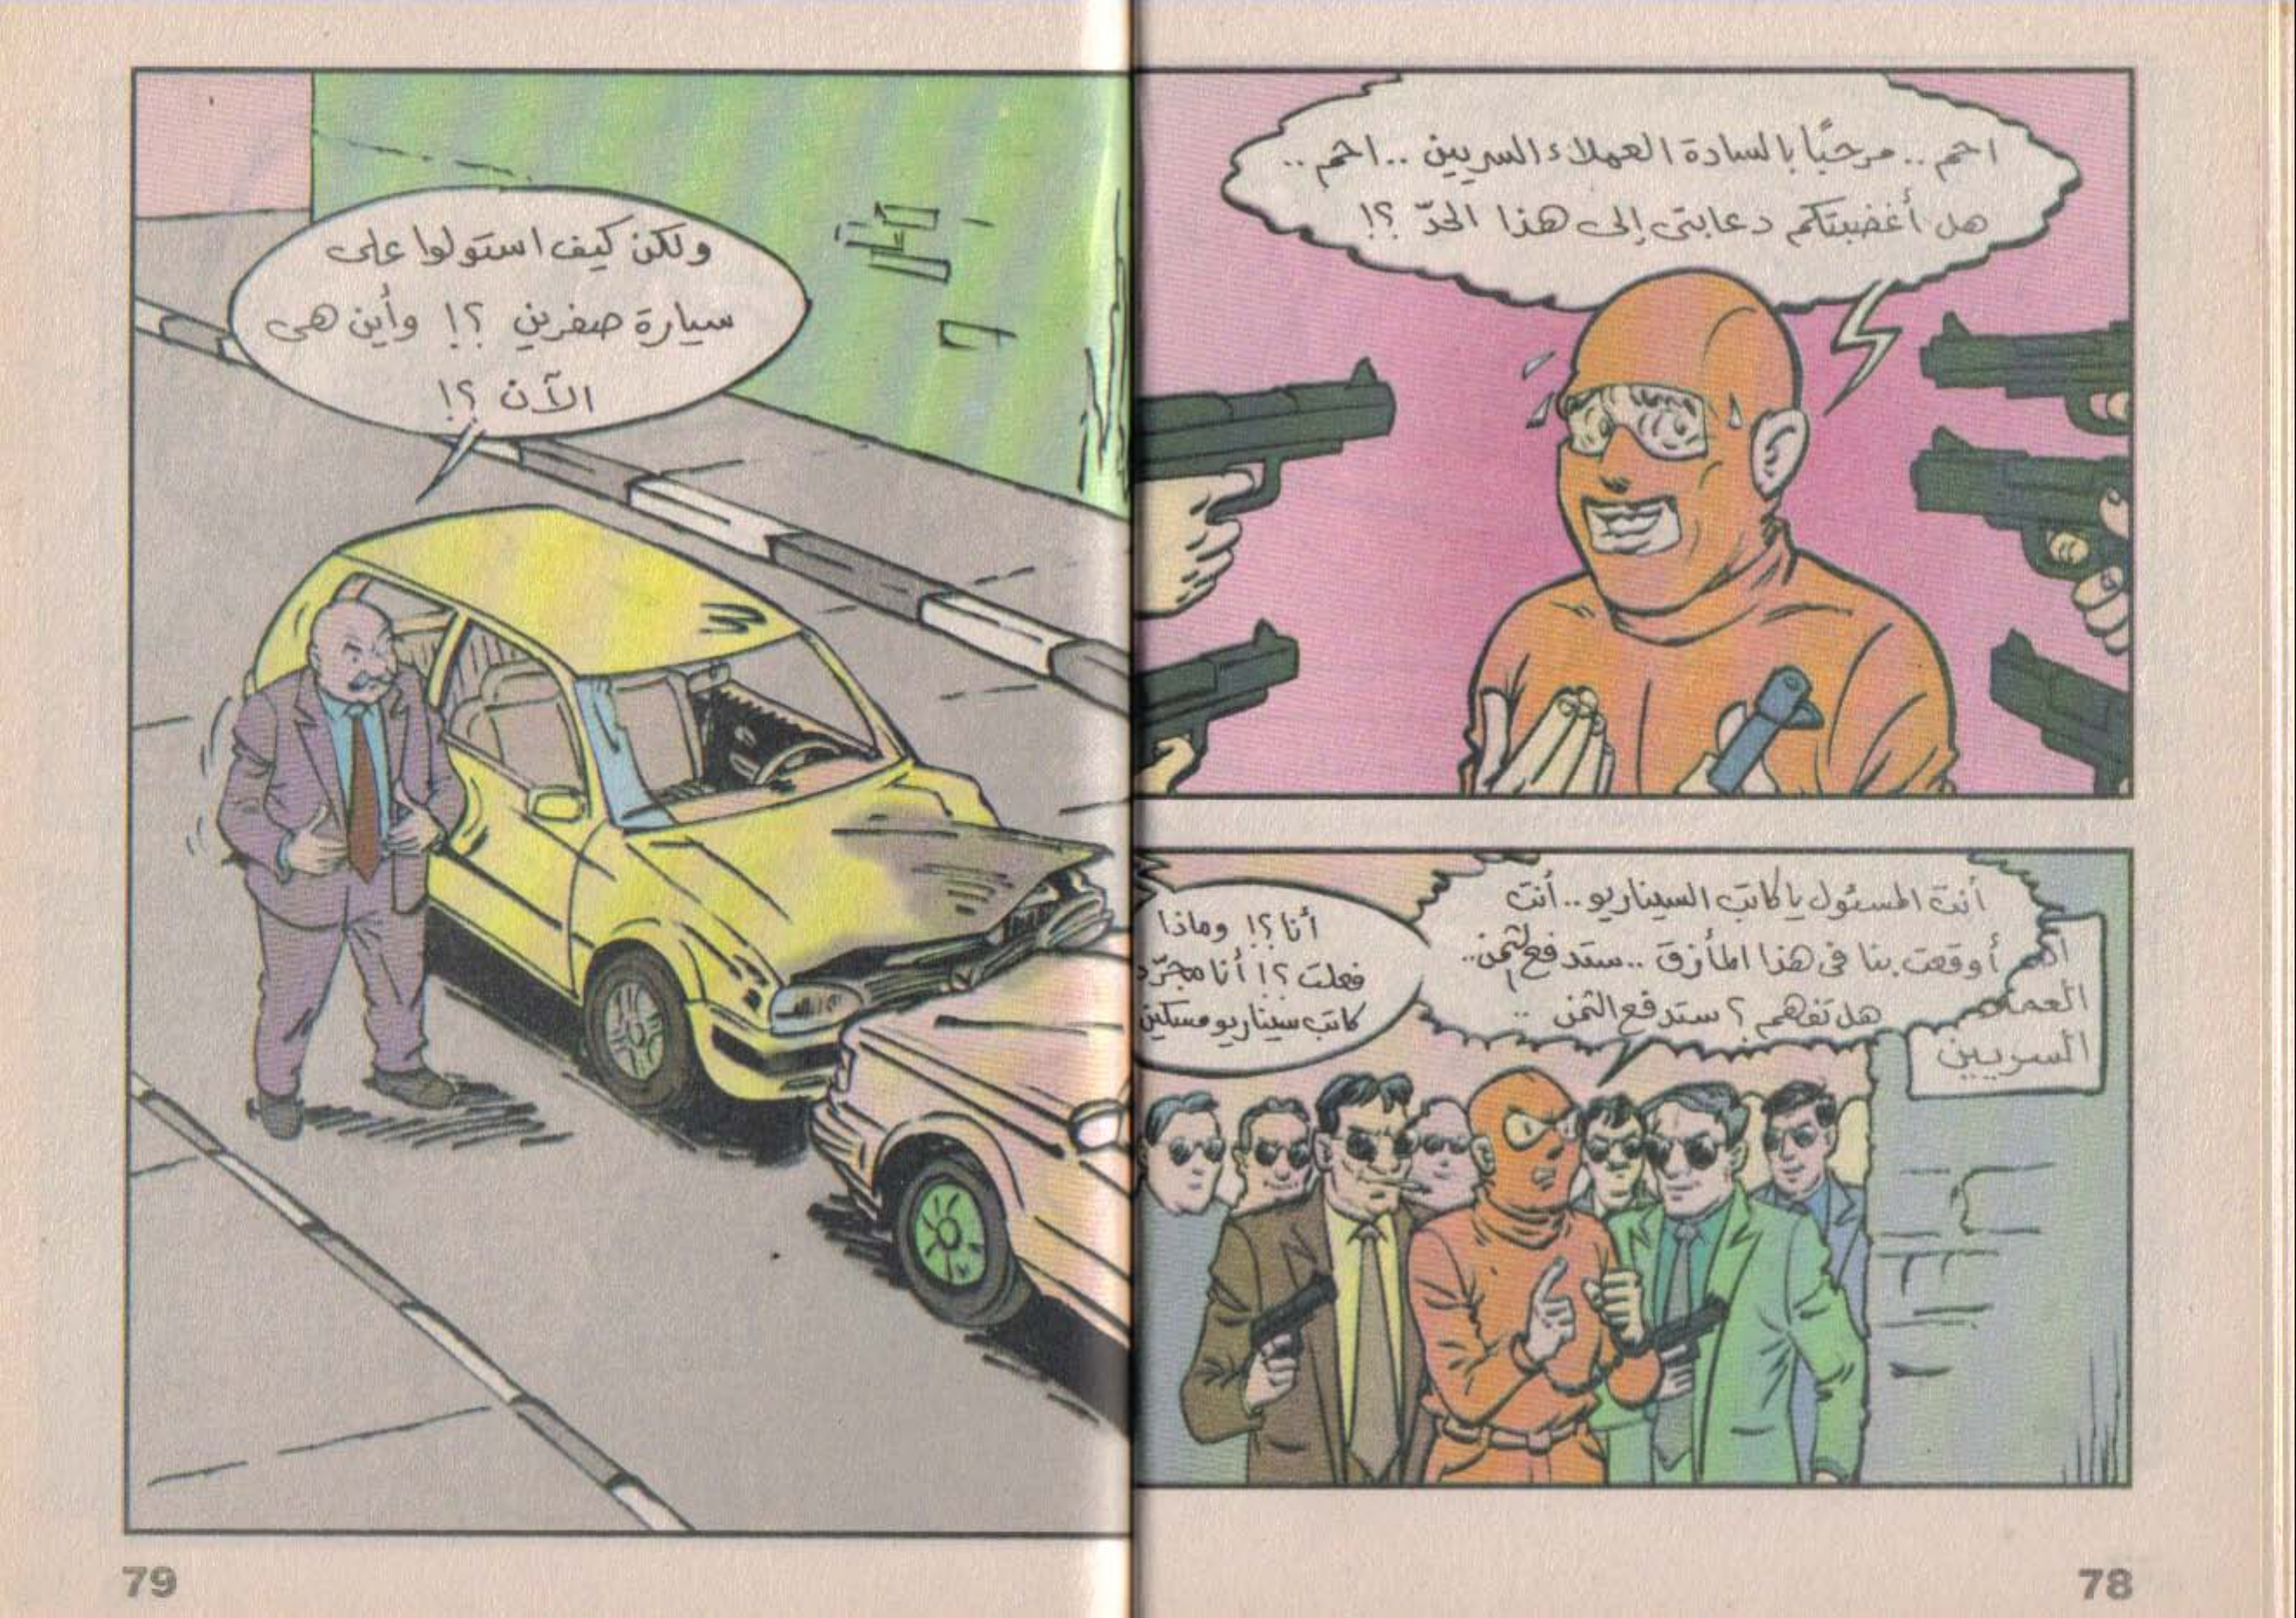 احم .. مرحبًا بالسادة العملاء السريين .. احم ..
هل أغضبتكم دعابتى إلى هذا الحدّ ؟!
أنت المسئول يا كاتب السيناريو .. أنت
أوقعت بنا فى هذا المأزق .. ستدفع الثمن ..
هل تفهم ؟ ستدفع الثمن ..
السريين
أنا ؟! وماذا
فعلت ؟! أنا مجرّد
كاتب سيناريو مسكين
78
ولكن كيف استولوا على
سيارة صفرين ؟! وأين هى
الآن ؟!
79